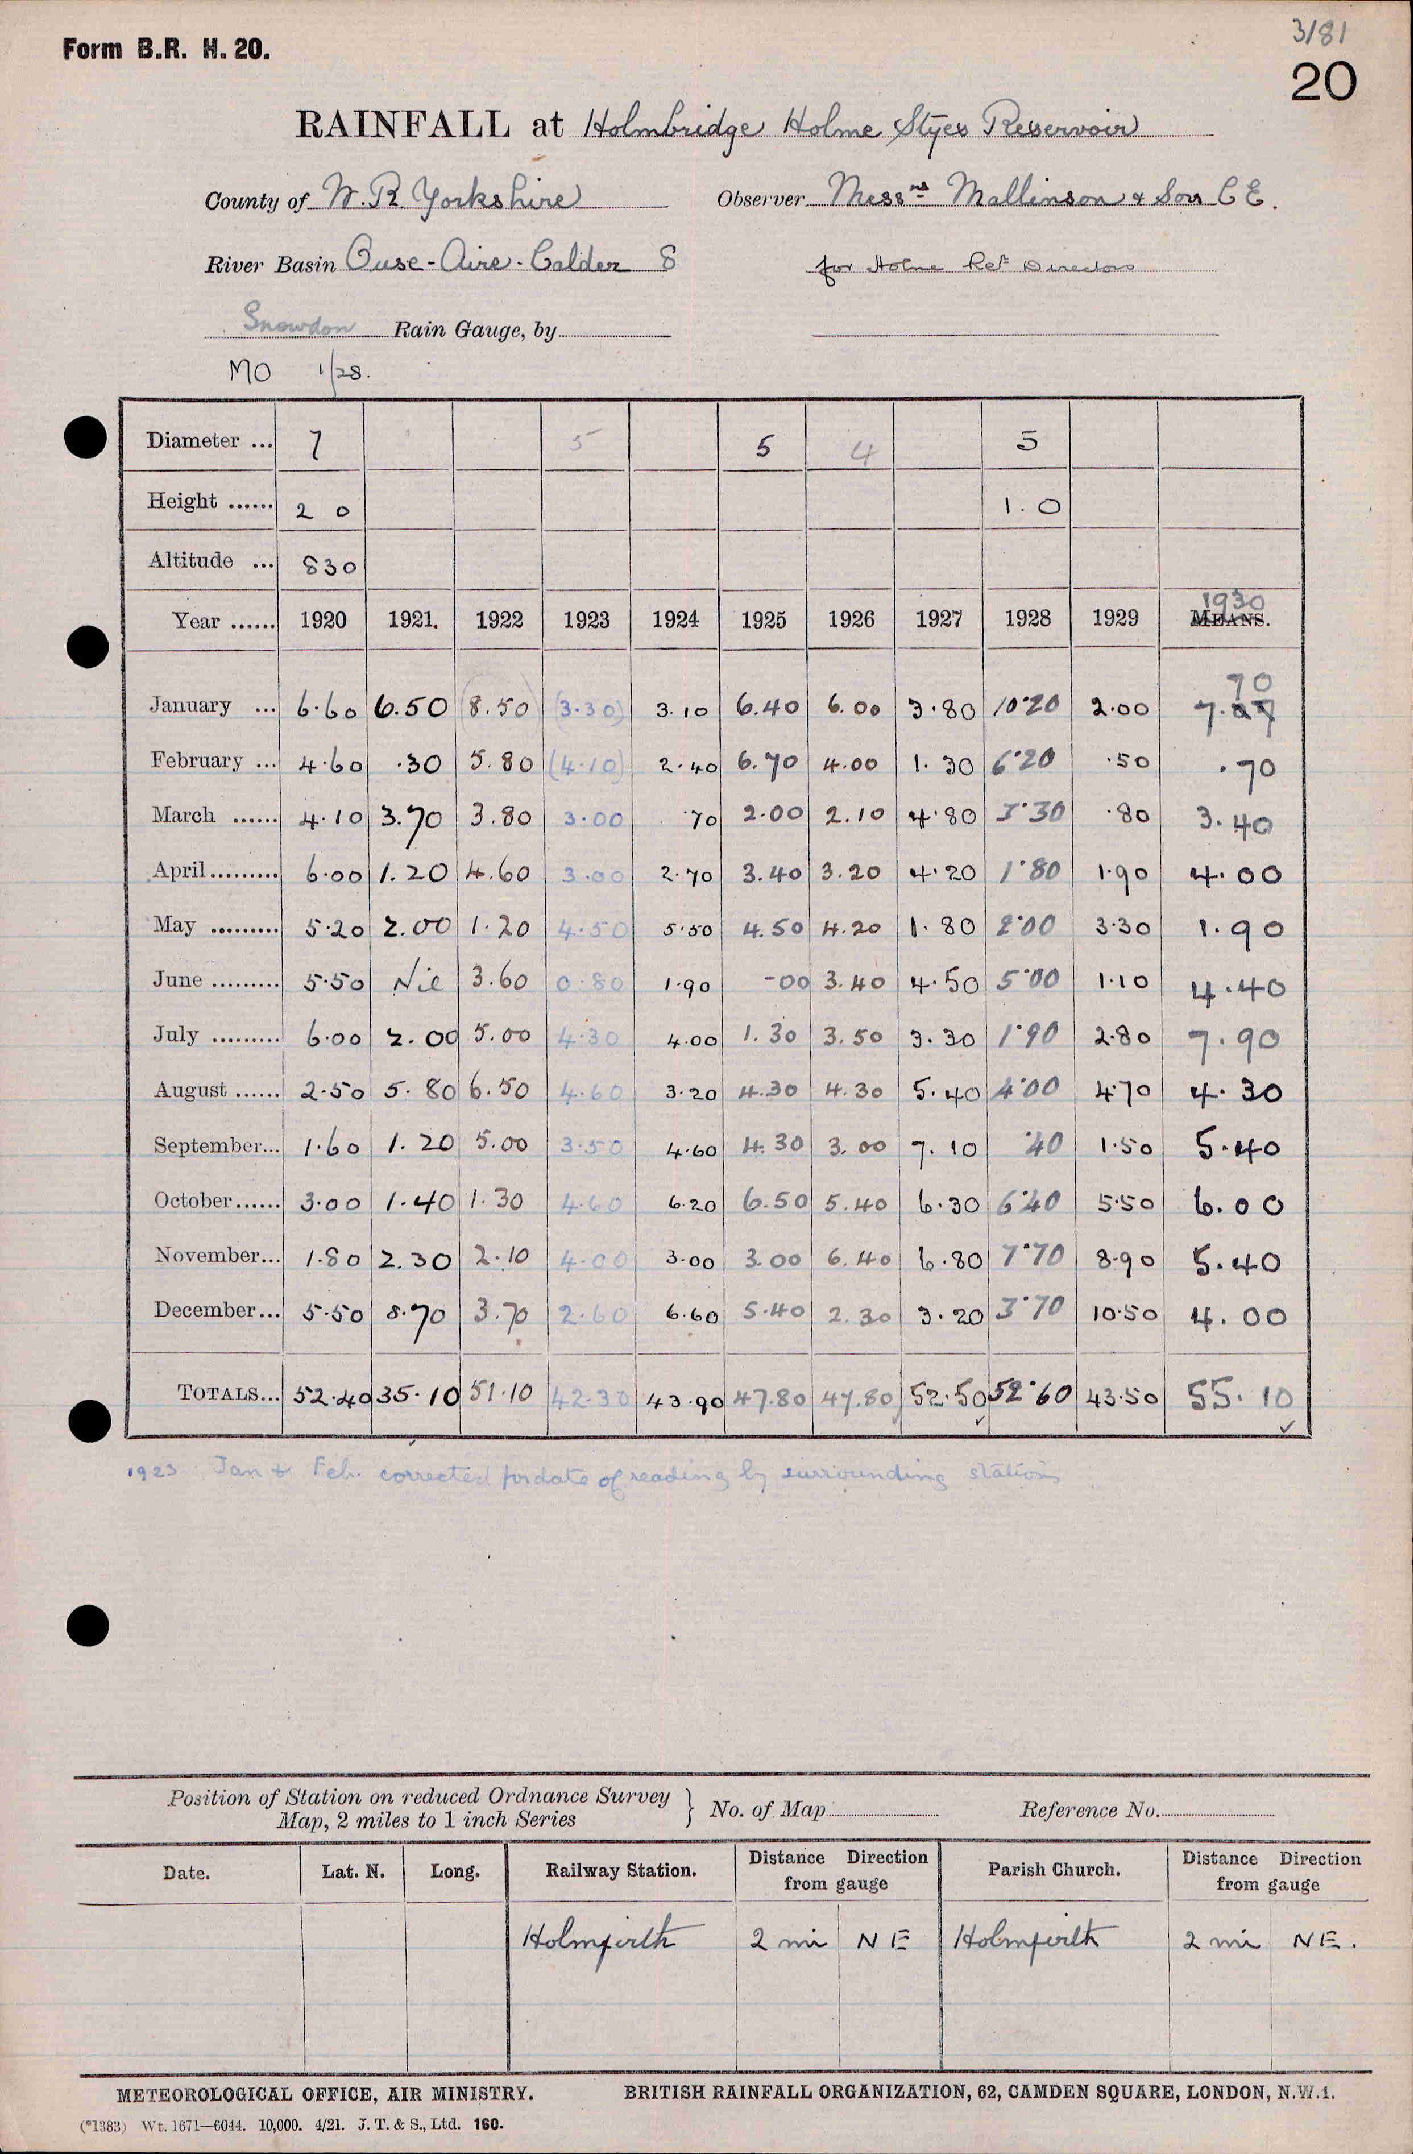 3/81
Form B.R. H. 20.
20
RAINFALL at Holmbridge Holme Styes Reservoir
County of W. R. Yorkshire Observer Messrs Mallinson & Son C E.
River Basin Ouse - Aire - Calder 8 for Holme Resr Directors
Snowdon Rain Gauge, by
MO 1/28.
Diameter ... 7 5 5 4 5
Height ...... 2 0 1. 0
Altitude ... 830
Year ...... 1920 1921. 1922 1923 1924 1925 1926 1927 1928 1929 1930 MEANS.
January ... 6.60 6.50 8.50 (3.30) 3.10 6.40 6.00 3.80 10.20 2.00 7.70
February ... 4.60 .30 5.80 (4.10) 2.40 6.70 4.00 1.30 6.20 .50 .70
March ...... 4.10 3.70 3.80 3.00 .70 2.00 2.10 4.80 3.30 .80 3.40
April ......... 6.00 1.20 4.60 3.00 2.70 3.40 3.20 4.20 1.80 1.90 4.00
May ......... 5.20 2.00 1.20 4.50 5.50 4.50 4.20 1.80 2.00 3.30 1.90
June ......... 5.50 Nil 3.60 0.80 1.90 -00 3.40 4.50 5.00 1.10 4.40
July ......... 6.00 2.00 5.00 4.30 4.00 1.30 3.50 3.30 1.90 2.80 7.90
August ...... 2.50 5.80 6.50 4.60 3.20 4.30 4.30 5.40 4.00 4.70 4.30
September... 1.60 1.20 5.00 3.50 4.60 4.30 3.00 7.10 .40 1.50 5.40
October...... 3.00 1.40 1.30 4.60 6.20 6.50 5.40 6.30 6.40 5.50 6.00
November... 1.80 2.30 2.10 4.00 3.00 3.00 6.40 6.80 7.70 8.90 5.40
December... 5.50 8.70 3.70 2.60 6.60 5.40 2.30 3.20 3.70 10.50 4.00
TOTALS... 52.40 35.10 51.10 42.30 43.90 47.80 47.80 52.50 52.60 43.50 55.10
1923 Jan & Feb. corrected for date of reading by surrounding stations
Position of Station on reduced Ordnance Survey
Map, 2 miles to 1 inch Series } No. of Map Reference No.
Date. Lat. N. Long. Railway Station. Distance from gauge Direction Parish Church. Distance from gauge Direction
Holmfirth 2 mi N E Holmfirth 2 mi N E.
METEOROLOGICAL OFFICE, AIR MINISTRY. BRITISH RAINFALL ORGANIZATION, 62, CAMDEN SQUARE, LONDON, N.W.1.
(*1383) Wt. 1671—6044. 10,000. 4/21. J. T. & S., Ltd. 160.